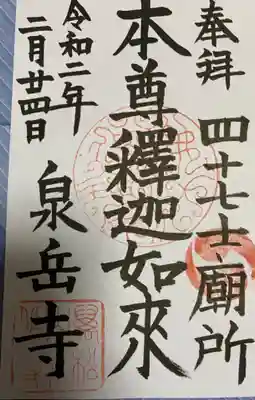 奉拝 四十七士廟所
本尊釋迦如來
泉岳寺
令和二年
二月廿四日